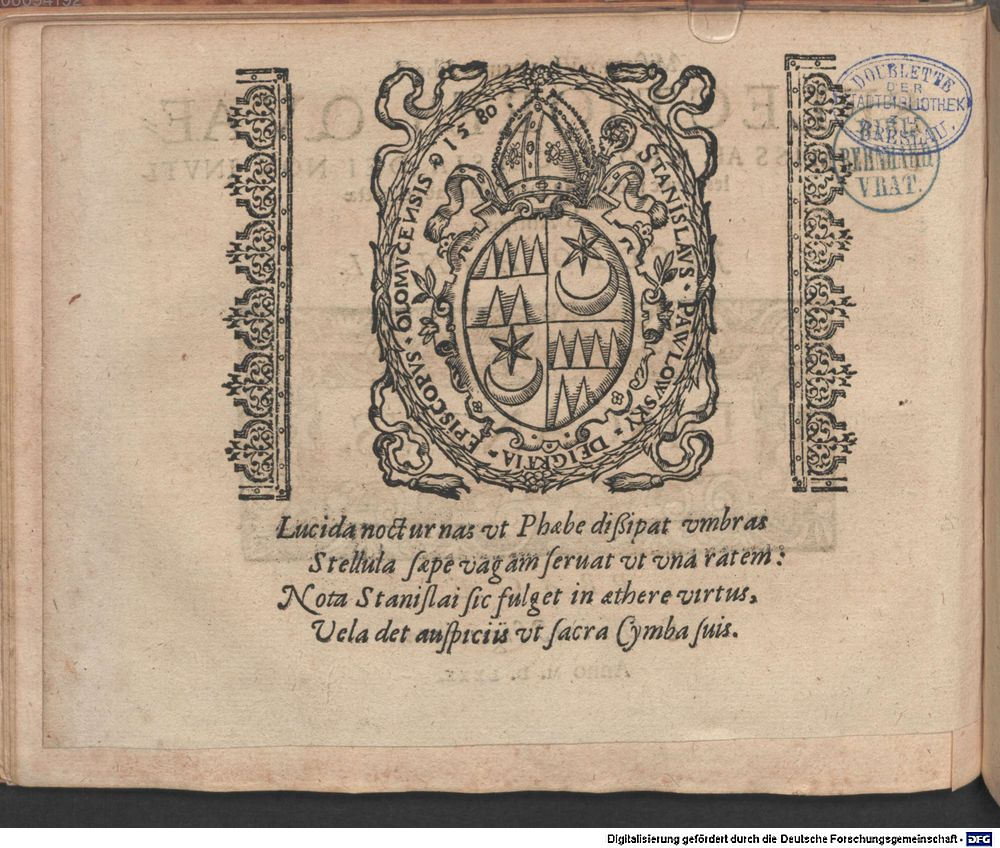 STANISLAVS · PAVLOWSKY · DEI GRATIA · EPISCOPVS · OLOMVCENSIS 1580
DOUBLETTE
DER
STADTBIBLIOTHEK
BRESLAU.
VRAT.
Lucida nocturnas vt Phæbe dißipat vmbras
Stellula ſæpe vagam ſeruat vt vna ratem:
Nota Staniſlai ſic fulget in æthere virtus,
Vela det auſpiciis vt ſacra Cymba ſuis.
Anno M. D. LXXX.
Digitalisierung gefördert durch die Deutsche Forschungsgemeinschaft - DFG